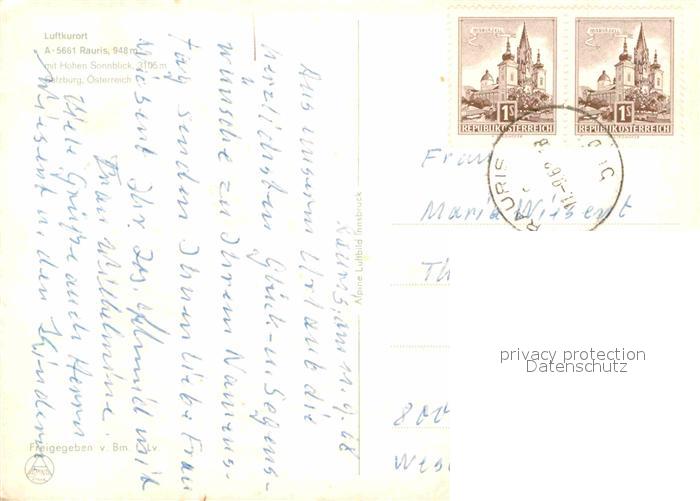 Luftkurort
A-5661 Rauris, 948 m
mit Hohen Sonnblick, 3105 m
Salzburg, Österreich
Rauris, am 11.9.68
Aus unserm Urlaub die
herzlichsten Glück- u. Segens-
wünsche zu Ihrem Namens-
tag senden Ihnen liebe Frau
Wiesent Ihr Jos. Schmid mit
Frau Wilhelmine.
Viele Grüße auch Herrn
Wiesent u. den Kindern
Freigegeben v. Bm. f. Lv.
Alpine Luftbild Innsbruck
MARIAZELL
1S
REPUBLIK ÖSTERREICH
MARIAZELL
1S
REPUBLIK ÖSTERREICH
RAURIS
Frau
Maria Wiesent
Th
800
privacy protection
Datenschutz